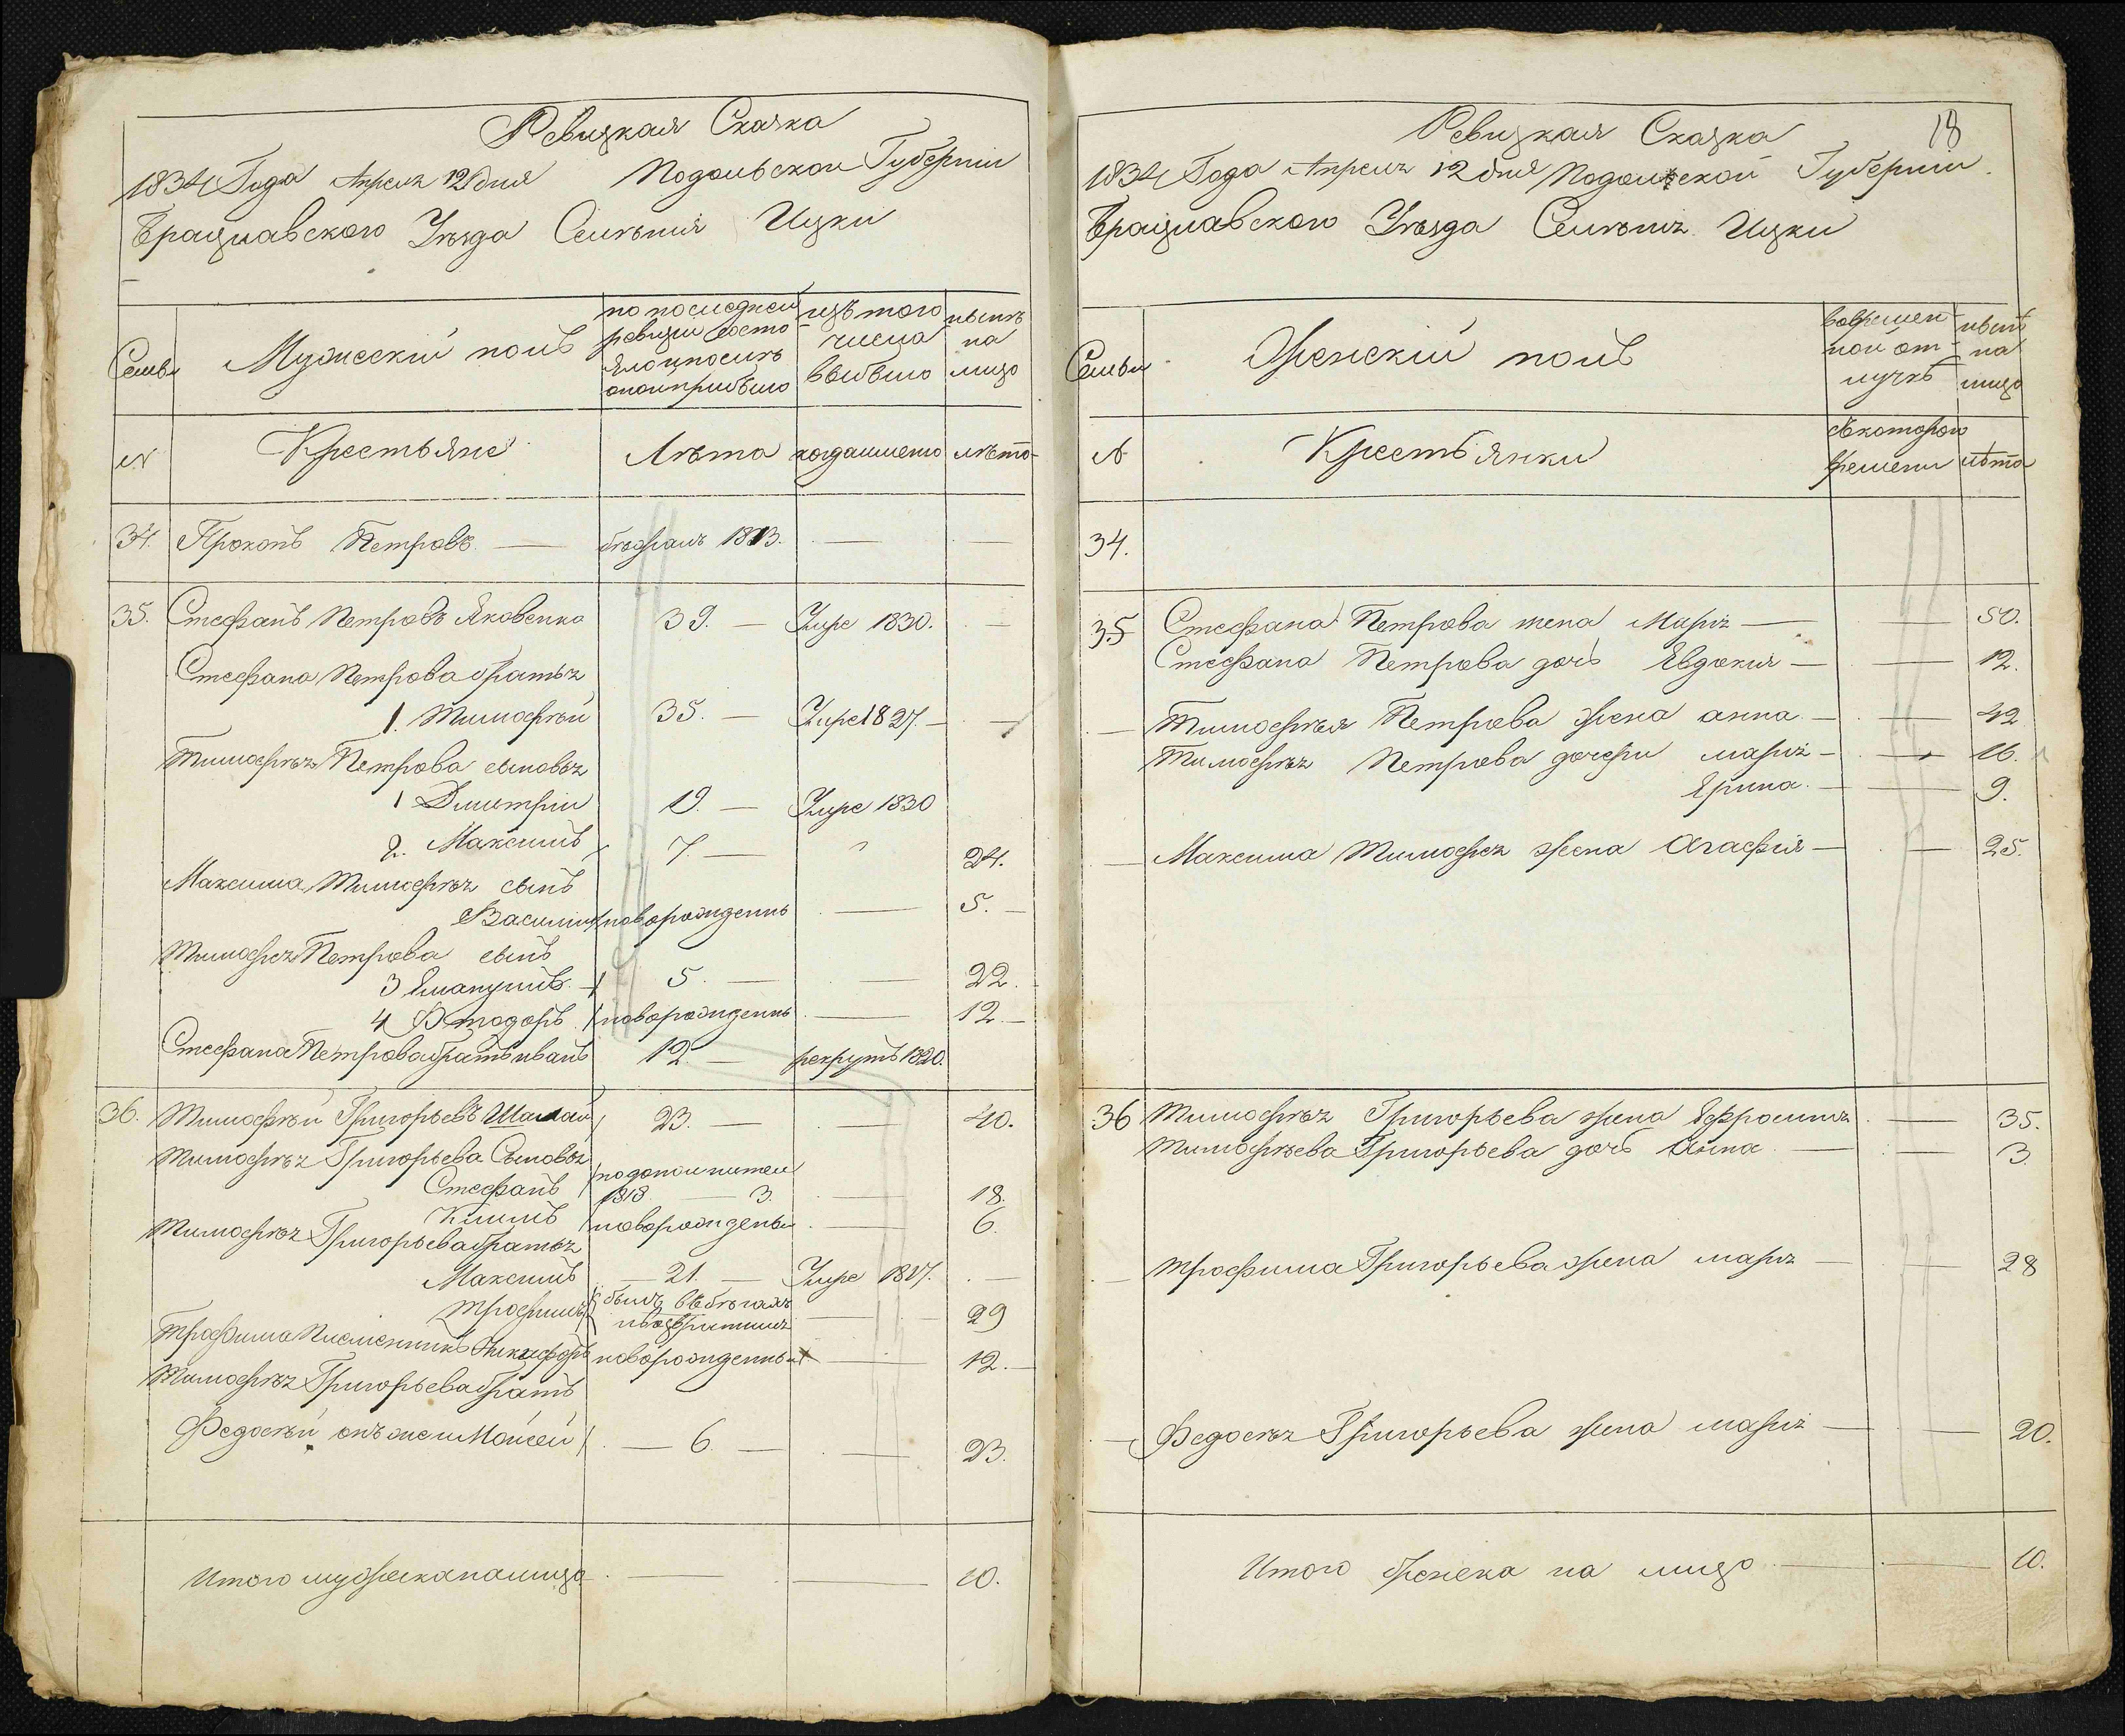 Ревизкая Сказка
1834 Года Апреля 12 дня Подольской Губернии
Брацлавского Уѣзда Селѣния Ицки
Семьи
Мужескій полъ
по последней
ревизии состо-
яло и после
оной прибыло
изъ того
числа
выбыло
нынѣ
на
лицо
№
Крестьяне
Лѣта
когда имено
лѣта
34. Прокопъ Петровъ — бѣжалъ 1813. — —
35. Стефанъ Петровъ Яковенко 39. — Умре 1830. —
Стефана Петрова братья
1. Тимофѣй 35. — Умре 1827. — —
Тимофѣя Петрова сыновья
1 Дмитрій 19. — Умре 1830
2. Максимъ 7. — 24.
Максима Тимофѣя сынъ
Василий новорожденъ — 5. —
Тимофея Петрова сынъ
3 Емануилъ 5. — — 22.
4 Фтодоръ новорожденъ — 12. —
Стефана Петрова братъ иванъ 12. — рекрутъ 1820.
36. Тимофѣй Григорьевъ Шамай 23. — — 40.
Тимофѣя Григорьева Сыновья
Стефанъ по дополнител
1818 — 3. — 18.
Климъ новорожденъ — 6.
Тимофѣя Григорьева братья
Максимъ — 21. — Умре 1827. —
трофимъ былъ въ бѣгахъ
и возвратился — 29
Трофима Племенникъ Никифоръ новорожденны — 12. —
Тимофѣя Григорьева братъ
Федосѣй онъ же и Мойсей — 6. — — 23.
Итого мужеска на лицо — — 10.
18
Ревизкая Сказка
1834 Года Апреля 12 дня Подольской Губернии.
Брацлавского Уѣзда Селѣния Ицки
Семьи
Женскій полъ
во времен-
ной от-
лучкѣ
нынѣ
на
лицо
№
Крестьянки
съ которого
времени
лѣта
34.
35 Стефана Петрова жена Мария — — 50.
Стефана Петрова дочь Евдокия — — 12.
Тимофѣя Петрова жена анна — — 42
Тимофѣя Петрова дочери мария — — 16.
Ерина. — — 9.
Максима Тимофея жена Агафия — — 25.
36 Тимофѣя Григорьева жена Ефросиния — 35.
Тимофѣева Григорьева дочь Анна — 3.
Трофима Григорьева жена мария — — 28
Федосѣя Григорьева жена мария — — 20.
Итого женска на лицо — — 10.